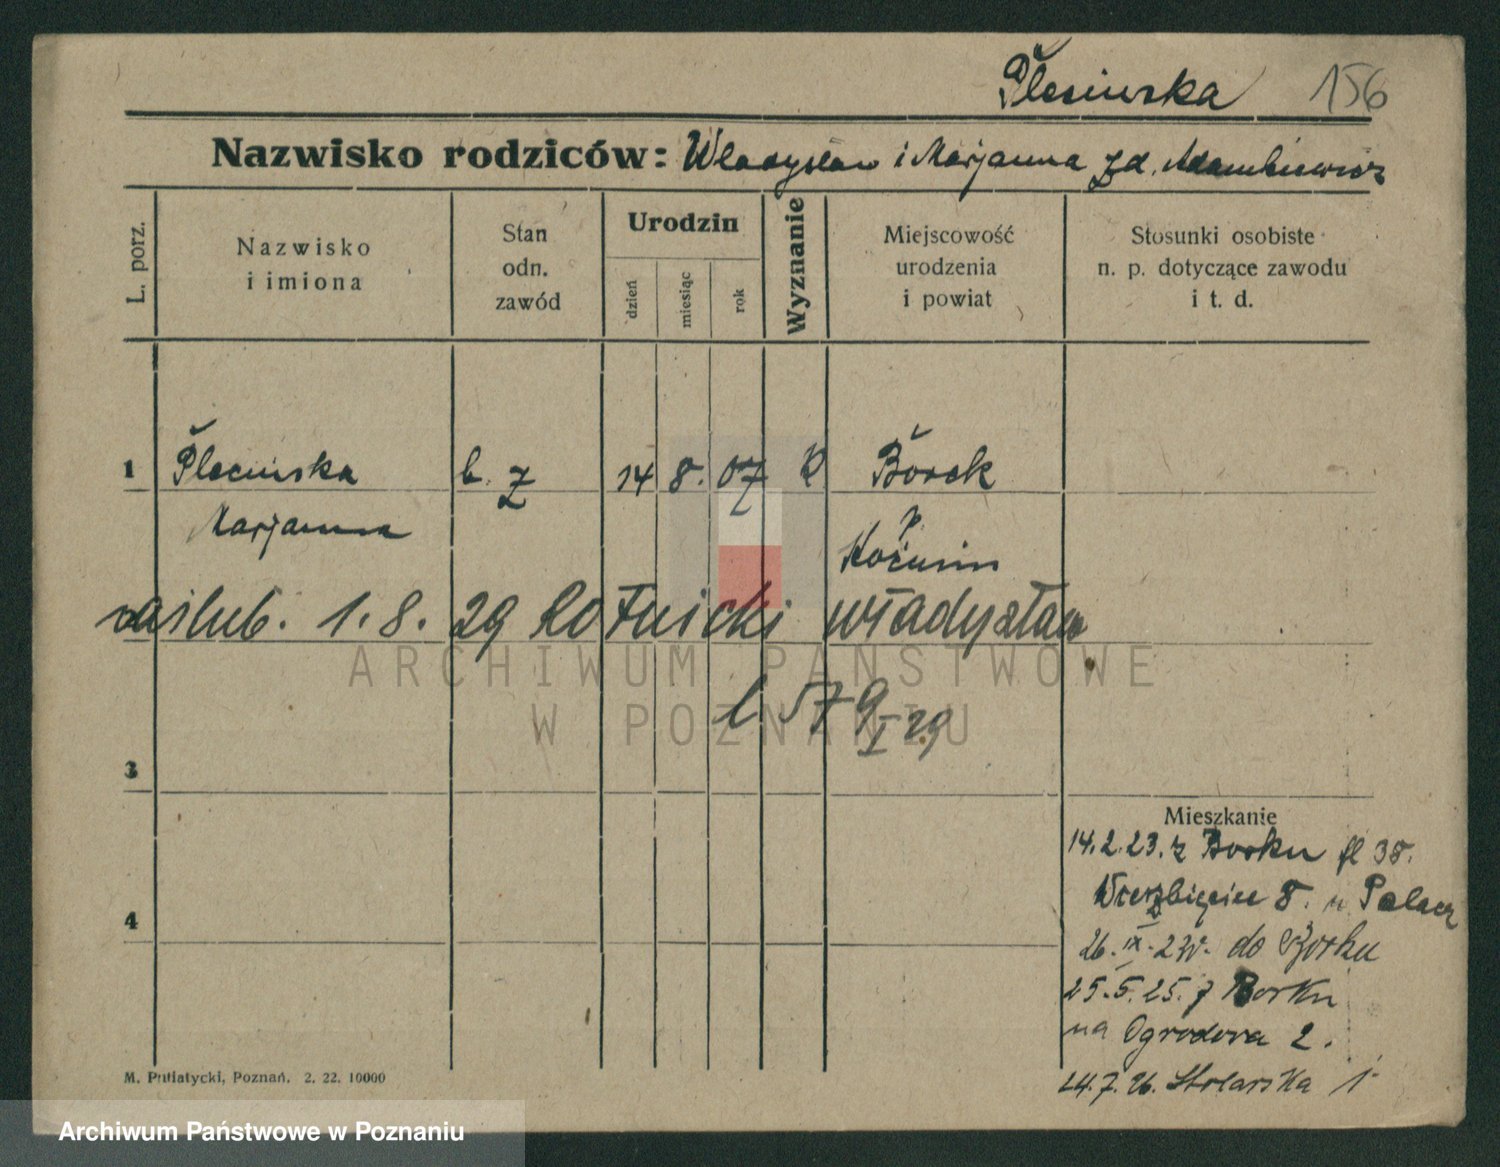 Plecińska 156
Nazwisko rodziców: Władysław i Marjanna zd. Adamkiewicz
L. porz.
Nazwisko
i imiona
Stan
odn.
zawód
Urodzin
dzień
miesiąc
rok
Wyznanie
Miejscowość
urodzenia
i powiat
Stosunki osobiste
n. p. dotyczące zawodu
i t. d.
1 Plecińska b. Z 14 8. 07 K Borek
Marjanna p.
Koźmin
zaślub. 1. 8. 29 Rotnicki Władysław
l 57 9/I 29
3
4
Mieszkanie
14. 2. 23. z Borku fl 38.
Wierzbięcice 8. u Palacz
26. IX. 23r. do Borku
25. 5. 25. z Borku
na Ogrodowa 2.
24. 7. 26. Stolarska 1
M. Putiatycki, Poznań. 2. 22. 10000
ARCHIWUM PAŃSTWOWE
W POZNANIU
Archiwum Państwowe w Poznaniu